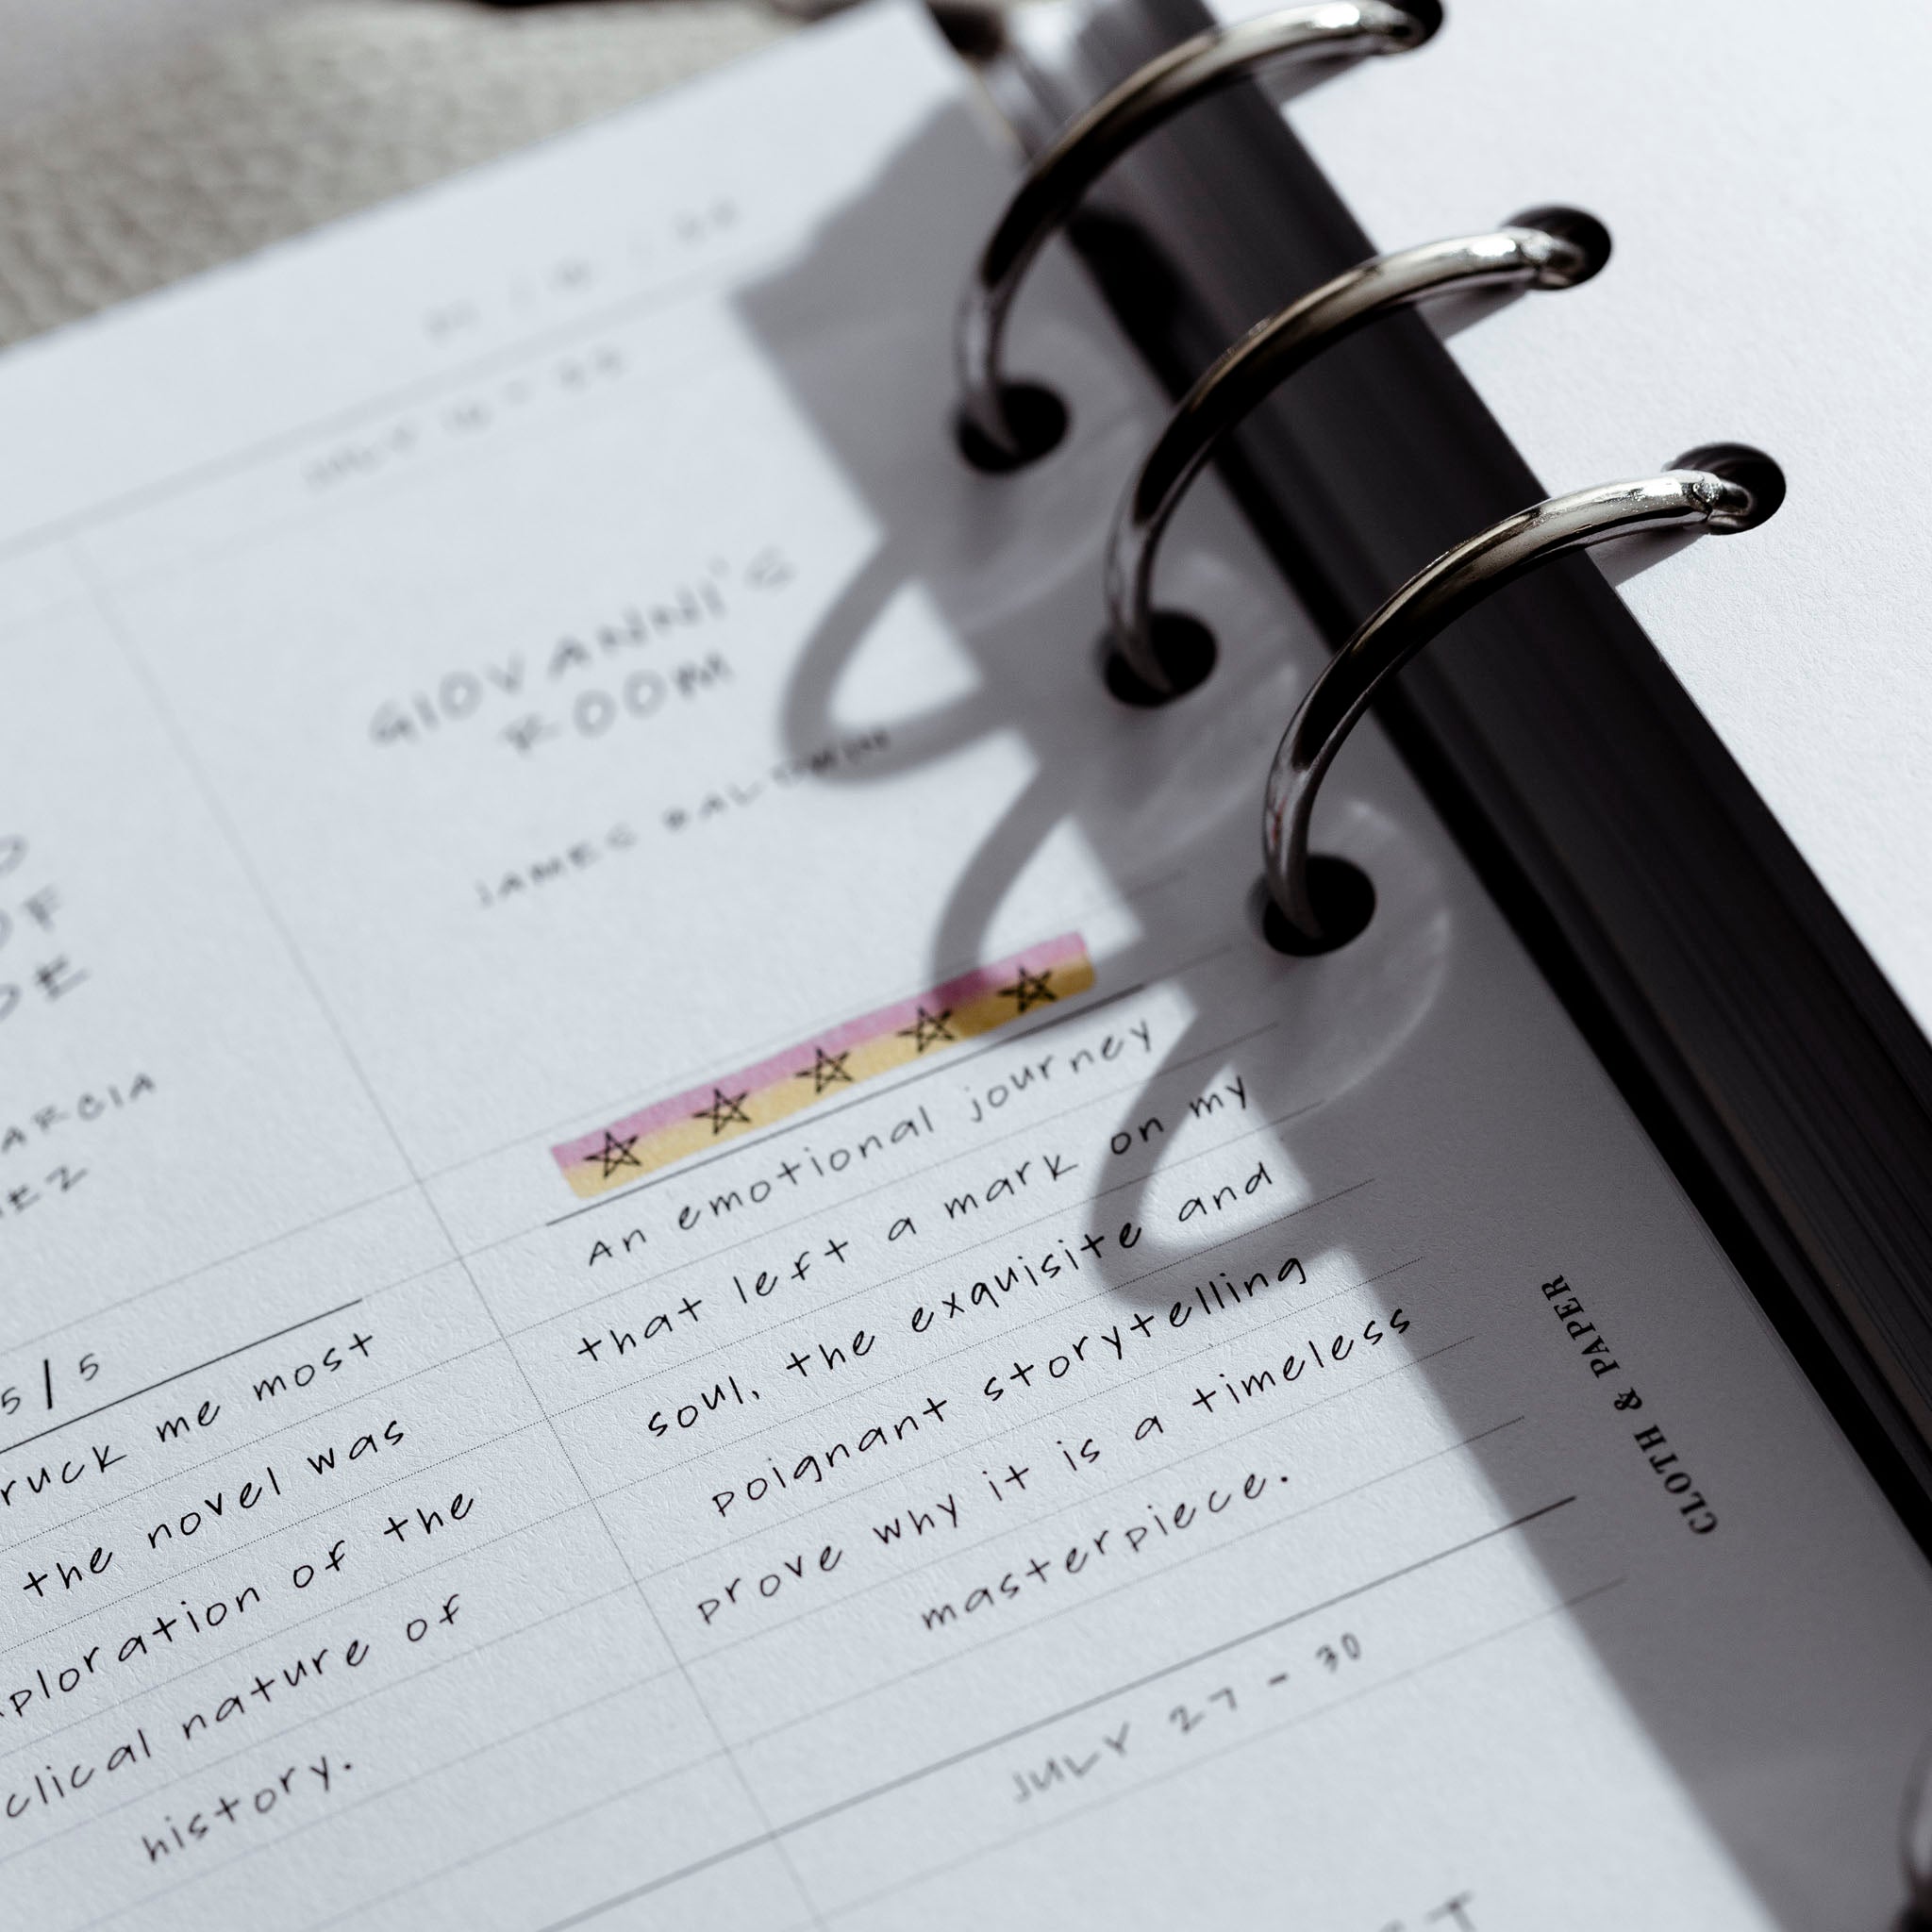 GIOVANNI'S
ROOM
JAMES BALDWIN
An emotional journey
that left a mark on my
soul, the exquisite and
poignant storytelling
prove why it is a timeless
masterpiece.
JULY 27 - 30
OF
5/5
me most
the novel was
of the
nature of
history.
CLOTH & PAPER